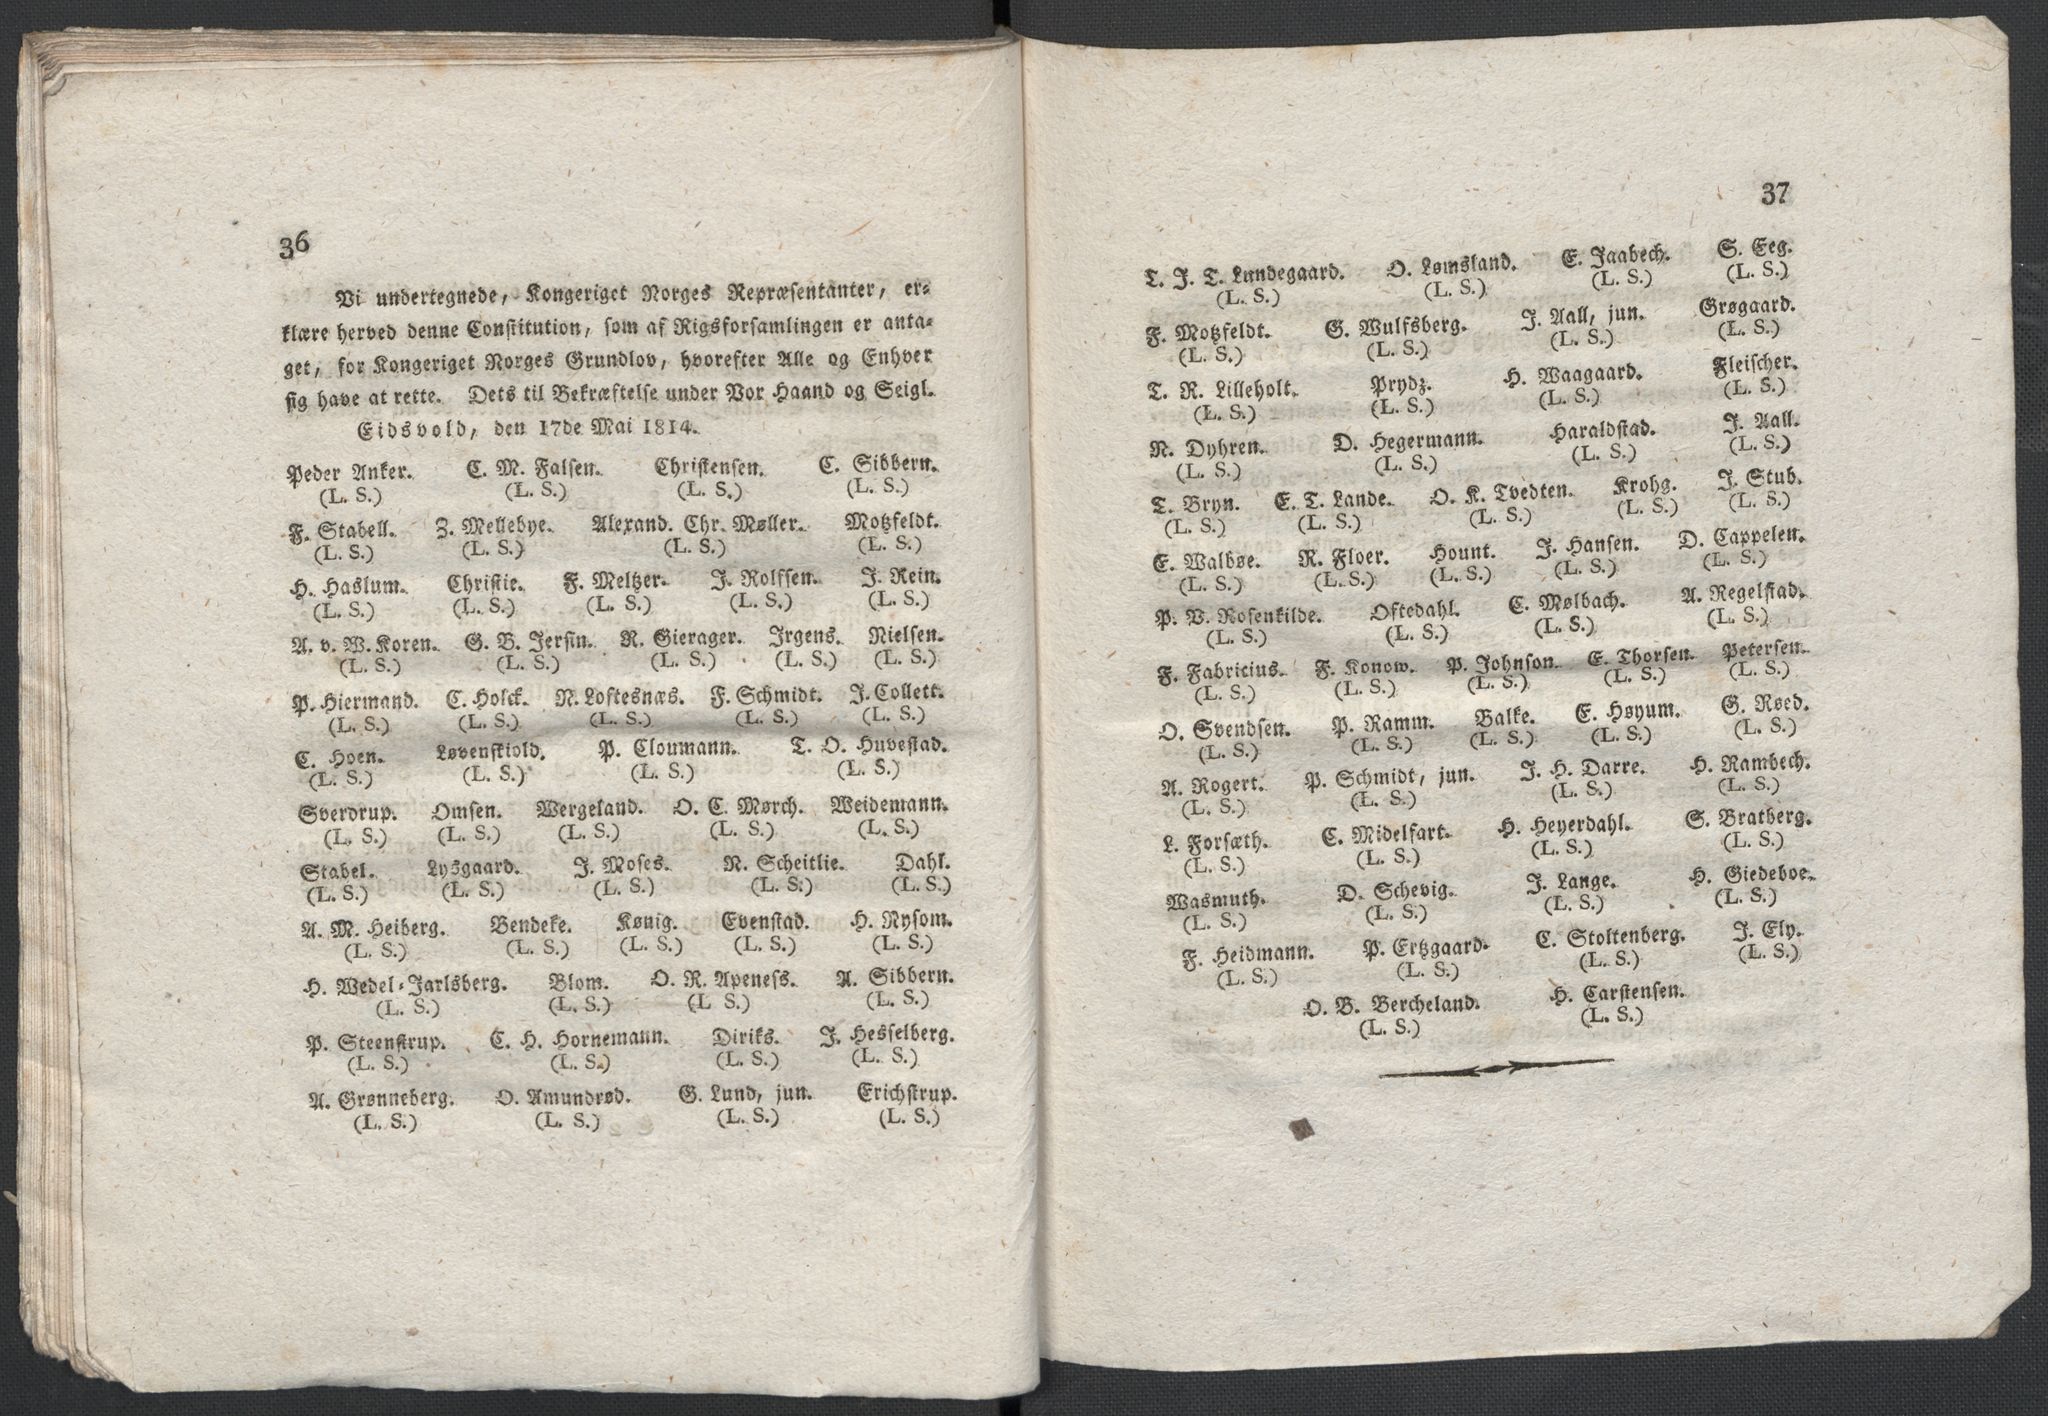 36
Vi undertegnede, Kongeriget Norges Repræsentanter, er-
klære herved denne Constitution, som af Rigsforsamlingen er anta-
get, for Kongeriget Norges Grundlov, hvorefter Alle og Enhver
sig have at rette. Dets til Bekræftelse under Vor Haand og Seigl.
Eidsvold, den 17de Mai 1814.
Peder Anker. C. M. Falsen. Christensen. C. Sibbern.
(L. S.) (L. S.) (L. S.) (L. S.)
F. Stabell. Z. Mellebye. Alexand. Chr. Møller. Motzfeldt.
(L. S.) (L. S.) (L. S.) (L. S.)
H. Haslum. Christie. F. Meltzer. J. Rolfsen. J. Rein.
(L. S.) (L. S.) (L. S.) (L. S.) (L. S.)
A. v. W. Koren. G. B. Jersin. R. Gierager. Irgens. Nielsen.
(L. S.) (L. S.) (L. S.) (L. S.) (L. S.)
P. Hiermand. C. Holck. N. Loftesnæs. F. Schmidt. J. Collett.
(L. S.) (L. S.) (L. S.) (L. S.) (L. S.)
C. Hoen. Løvenskiold. P. Cloumann. T. O. Huvestad.
(L. S.) (L. S.) (L. S.) (L. S.)
Sverdrup. Omsen. Wergeland. O. C. Mørch. Weidemann.
(L. S.) (L. S.) (L. S.) (L. S.) (L. S.)
Stabel. Lysgaard. J. Moses. N. Scheitlie. Dahl.
(L. S.) (L. S.) (L. S.) (L. S.) (L. S.)
A. M. Heiberg. Bendeke. Kønig. Evenstad. H. Nysom.
(L. S.) (L. S.) (L. S.) (L. S.) (L. S.)
H. Wedel-Jarlsberg. Blom. O. R. Apeness. A. Sibbern.
(L. S.) (L. S.) (L S.) (L. S.)
P. Steenstrup. C. H. Hornemann. Diriks. J. Hesselberg.
(L. S.) (L. S.) (L. S.) (L. S.)
A. Grønneberg. O. Amundrød. G. Lund, jun. Erichstrup.
(L. S.) (L. S.) (L. S.) (L. S.)
37
T. J. T. Lundegaard. O. Lømsland. E. Jaabech. S. Eeg.
(L. S.) (L. S.) (L. S.) (L. S.)
F. Motzfeldt. G. Wulfsberg. J. Aall, jun. Grøgaard.
(L. S.) (L. S.) (L. S.) (L. S.)
T. R. Lilleholt. Prydz. H. Waagaard. Fleischer.
(L. S.) (L. S.) (L. S.) (L. S.)
N. Dyhren. D. Hegermann. Haraldstad. J. Aall.
(L. S.) (L. S.) (L. S.) (L. S.)
T. Bryn. E. T. Lande. O. K. Tvedten. Krohg. J. Stub.
(L. S.) (L. S.) (L. S.) (L. S.) (L. S.)
E. Walbøe. R. Floer. Hount. J. Hansen. D. Cappelen.
(L. S.) (L. S.) (L. S.) (L. S.) (L. S.)
P. V. Rosenkilde. Oftedahl. C. Mølbach. A. Regelstad.
(L. S.) (L. S.) (L. S.) (L. S.)
F. Fabricius. F. Konow. P. Johnson. E. Thorsen. Petersen.
(L. S.) (L. S.) (L. S.) (L. S.) (L. S.)
O. Svendsen. P. Ramm. Balke. E. Høyum. G. Røed.
(L. S.) (L. S.) (L. S.) (L. S.) (L. S.)
A. Rogert. P. Schmidt, jun. J. H. Darre. H. Rambech.
(L. S.) (L. S.) (L. S.) (L. S.)
L. Forsæth. C. Midelfart. H. Heyerdahl. S. Bratberg.
(L. S.) (L. S.) (L. S.) (L. S.)
Wasmuth. D. Schevig. J. Lange. H. Giedeboe.
(L. S.) (L. S.) (L. S.) (L. S.)
F. Heidmann. P. Ertzgaard. C. Stoltenberg. J. Ely.
(L. S.) (L. S.) (L. S.) (L. S.)
O. B. Bercheland. H. Carstensen.
(L. S.) (L. S.)